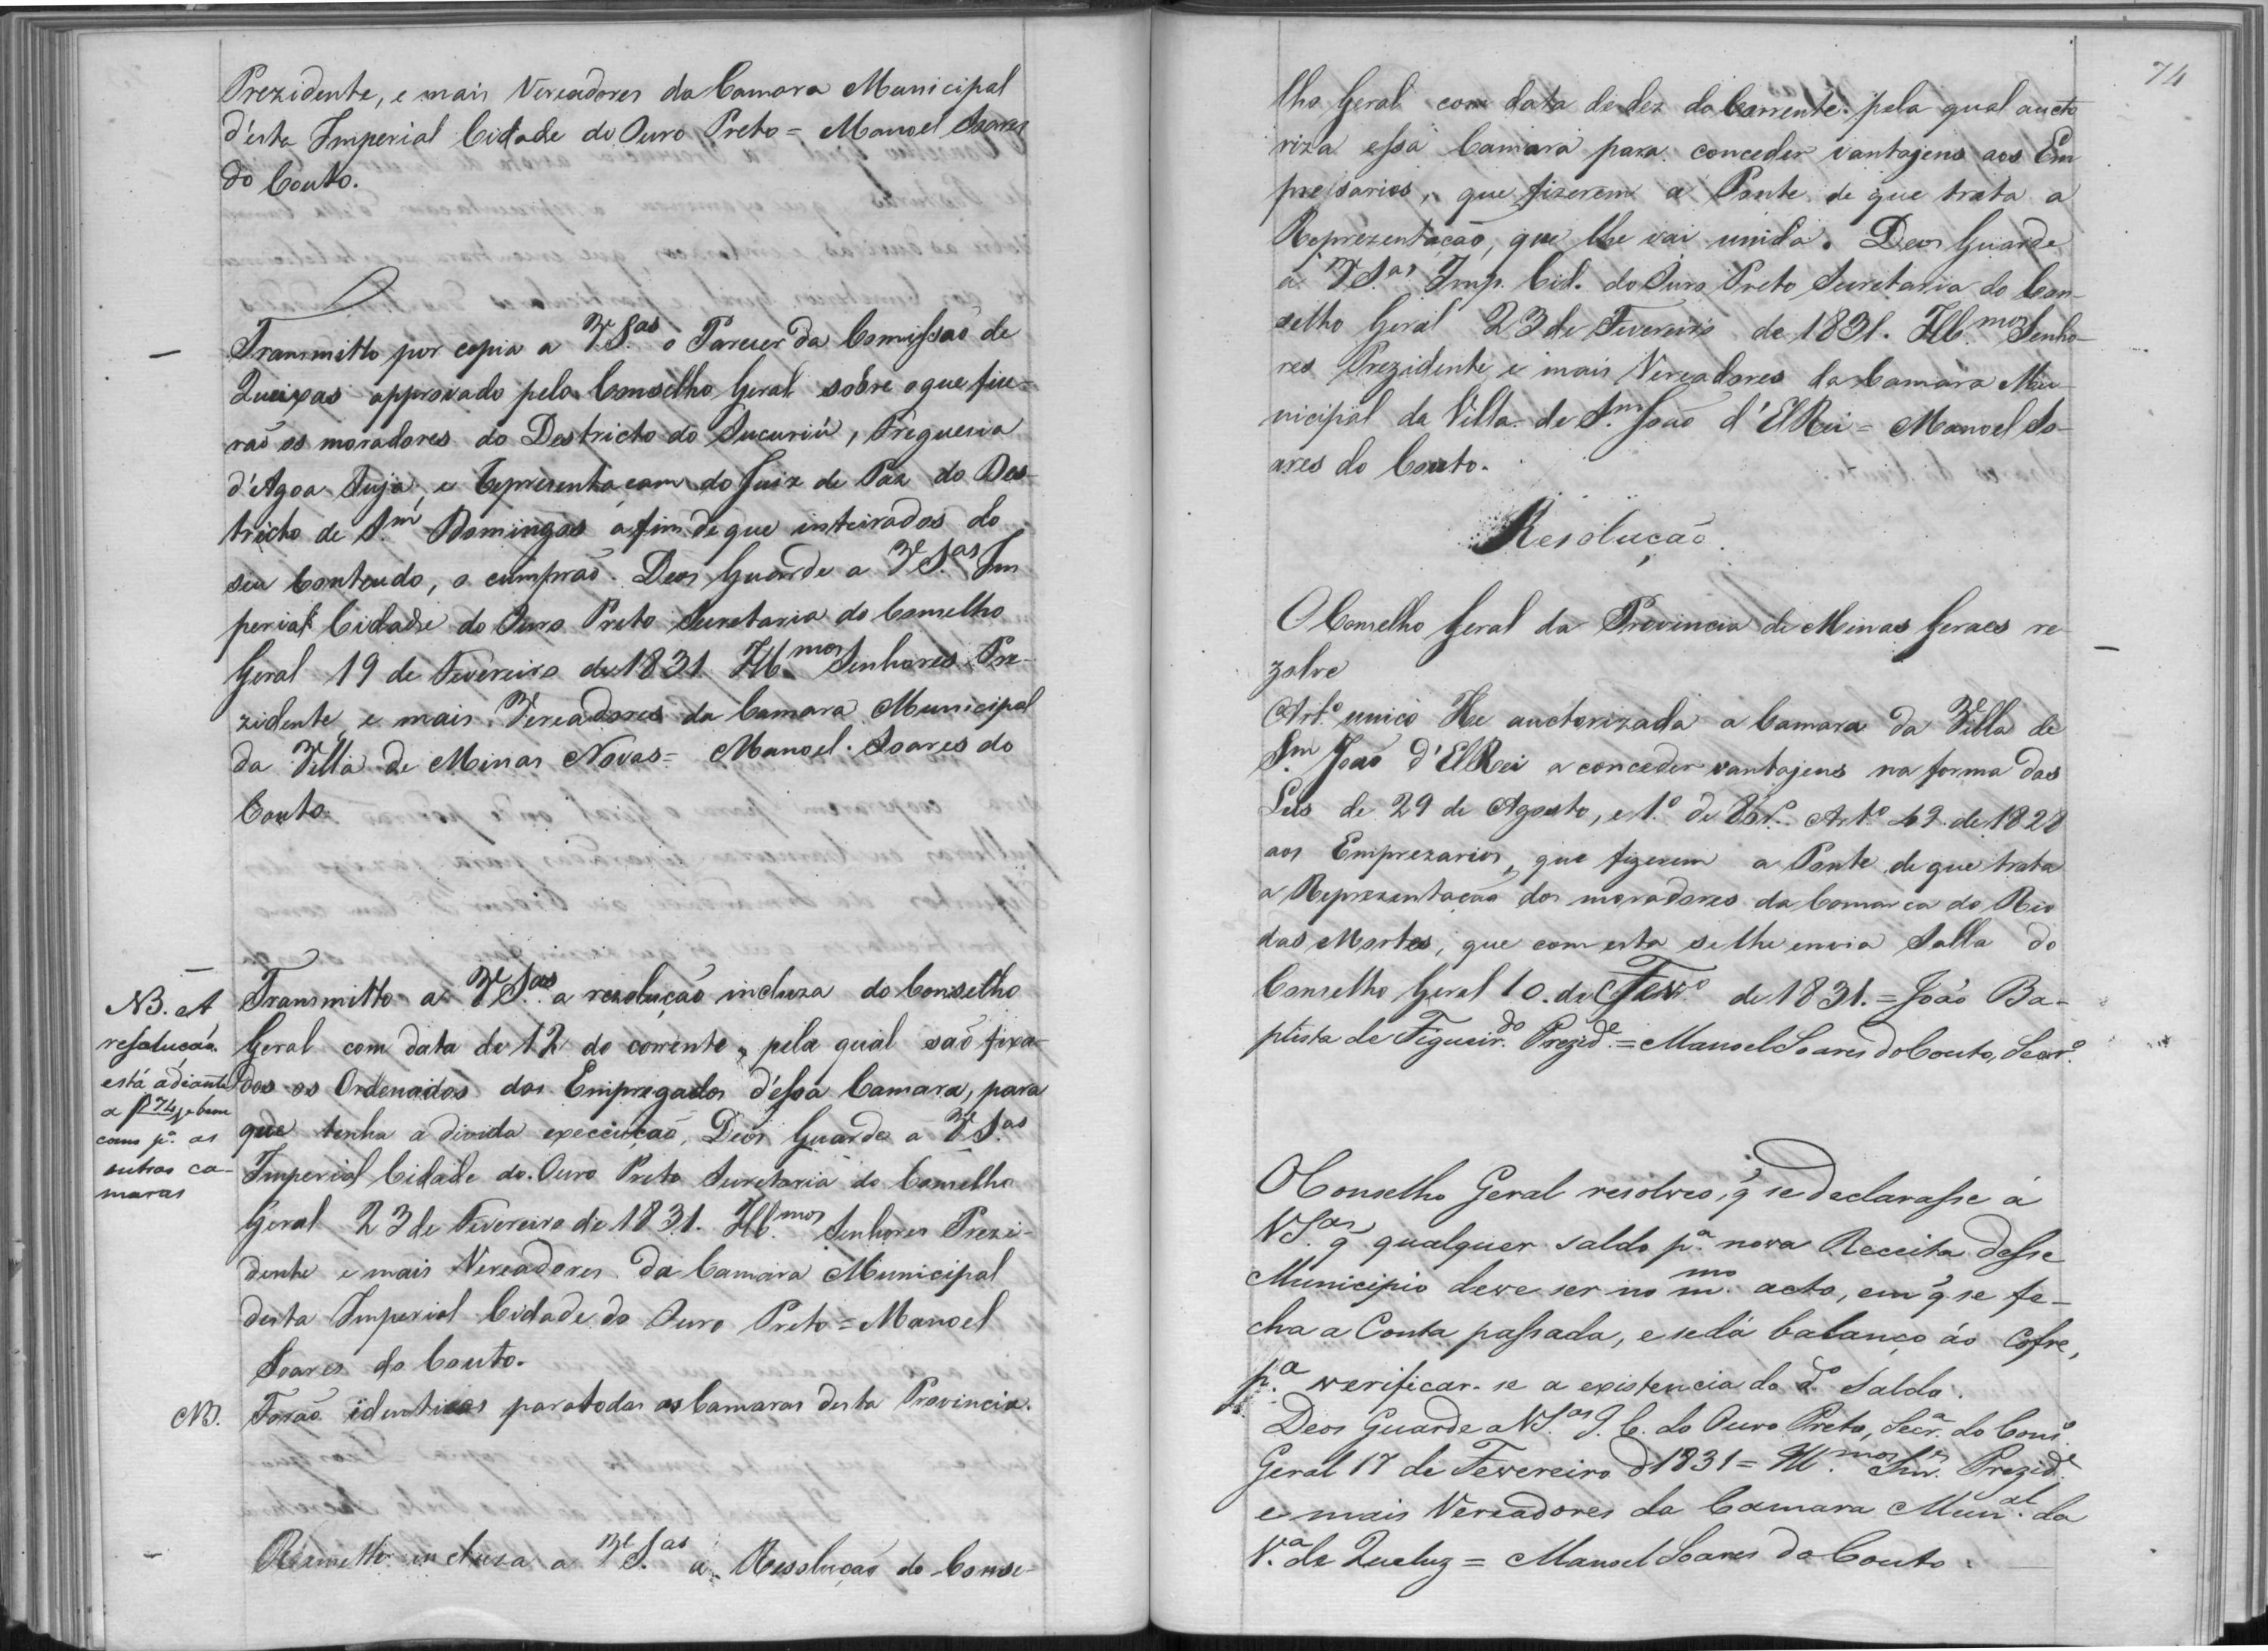 Prezidente, e mais Vereadores da Camara Municipal
d'esta Imperial Cidade do Ouro Preto = Manoel Soares
do Couto.
Transmitto por copia a V.S.as o Parecer da Comissaõ de
Queixas approvado pelo Conselho Geral sobre o que fize-
raõ os moradores do Destricto do Sucuriú, Freguesia
d'Agoa Suja, e representaçam do Juiz de Paz do Des-
tricto de S.m Domingos a fim de que inteirados do
seu Conteudo, o cumpraõ. Deos Guarde a V.S.as Im
perial Cidade do Ouro Preto Secretaria do Conselho
Geral 19 de Fevereiro de 1831. Ill.mos Senhores Pre-
zidente, e mais Vereadores da Camara Municipal
da Villa de Minas Novas = Manoel Soares do
Couto.
NB. A
resolução
está adiante
a f 74, e bem
como p.a as
outras ca-
maras
Transmitto a V.S.as a rezoluçaõ incluza do Conselho
Geral com data de 12 do corrente, pela qual saõ fixa-
dos os Ordenados dos Empregados d'essa Camara, para
que tenha a divida execcuçaõ. Deos Guarde a V.S.as
Imperial Cidade do Ouro Preto Secretaria do Conselho
Geral 23 de Fevereiro de 1831. Ill.mos Senhores Prezi-
dente e mais Vereadores da Camara Municipal
desta Imperial Cidade do Ouro Preto = Manoel
Soares do Couto.
NB. Foraõ identicas para todas as Camaras desta Provincia.
Remetto incluza a V.S.as a Resoluçaõ do Conse-
74
lho Geral com data de dez do Corrente pela qual aucto
riza essa Camara para conceder vantagens aos Em
presarios, que fizerem a Ponte de que trata a
Reprezentaçaõ, que lhe vai unida. Deos Guarde
a V.S.as Imp. Cid. do Ouro Preto Secretaria do Con-
selho Geral 23 de Fevereiro de 1831. Ill.mos Senho-
res Prezidente e mais Vereadores da Camara Mu-
nicipal da Villa de S.m Joaõ d'ElRei = Manoel So-
ares do Couto.
Resoluçaõ.
O Conselho Geral da Provincia de Minas Geraes re
zolve
Art.o unico He auctorizada a Camara da Villa de
S.m Joaõ d'ElRei a conceder vantagens na forma das
Leis de 29 de Agosto, e 1.o de 8br.o Art.o 49 de 1828
aos Emprezarios, que fizerem a Ponte de que trata
a Reprezentaçaõ dos moradores da Comarca do Rio
das Mortes, que com esta se lhe envia Salla do
Conselho Geral 10 de Fev.o de 1831. = Joaõ Ba-
ptista de Figueir.do Prezid.e = Manoel Soares do Couto, Secr.o
O Conselho Geral resolveo, q̃ se declarasse á
VS.as q̃ qualquer saldo p.a nova Receita desse
Municipio deve ser no m.mo acto, em q̃ se fe-
cha a Conta passada, e se dá balanço áo Cofre,
p.a verificar-se a existencia do d.o Saldo.
Deos Guarde a VS.as I. C. do Ouro Preto, Secr.a do Cons.o
Geral 17 de Fevereiro d 1831 = Ill.mos Snr.es Prezid.e
e mais Vereadores da Camara Mun.al da
V.a de Queluz = Manoel Soares do Couto.